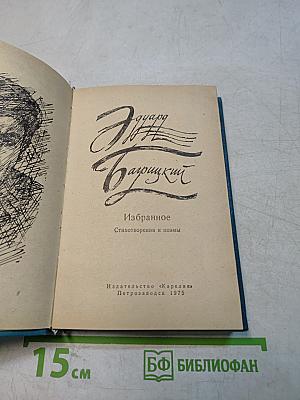 Эдуард
Багрицкий
Избранное
Стихотворения и поэмы
Издательство «Карелия»
Петрозаводск 1975
15 см
БФ БИБЛИОФАН